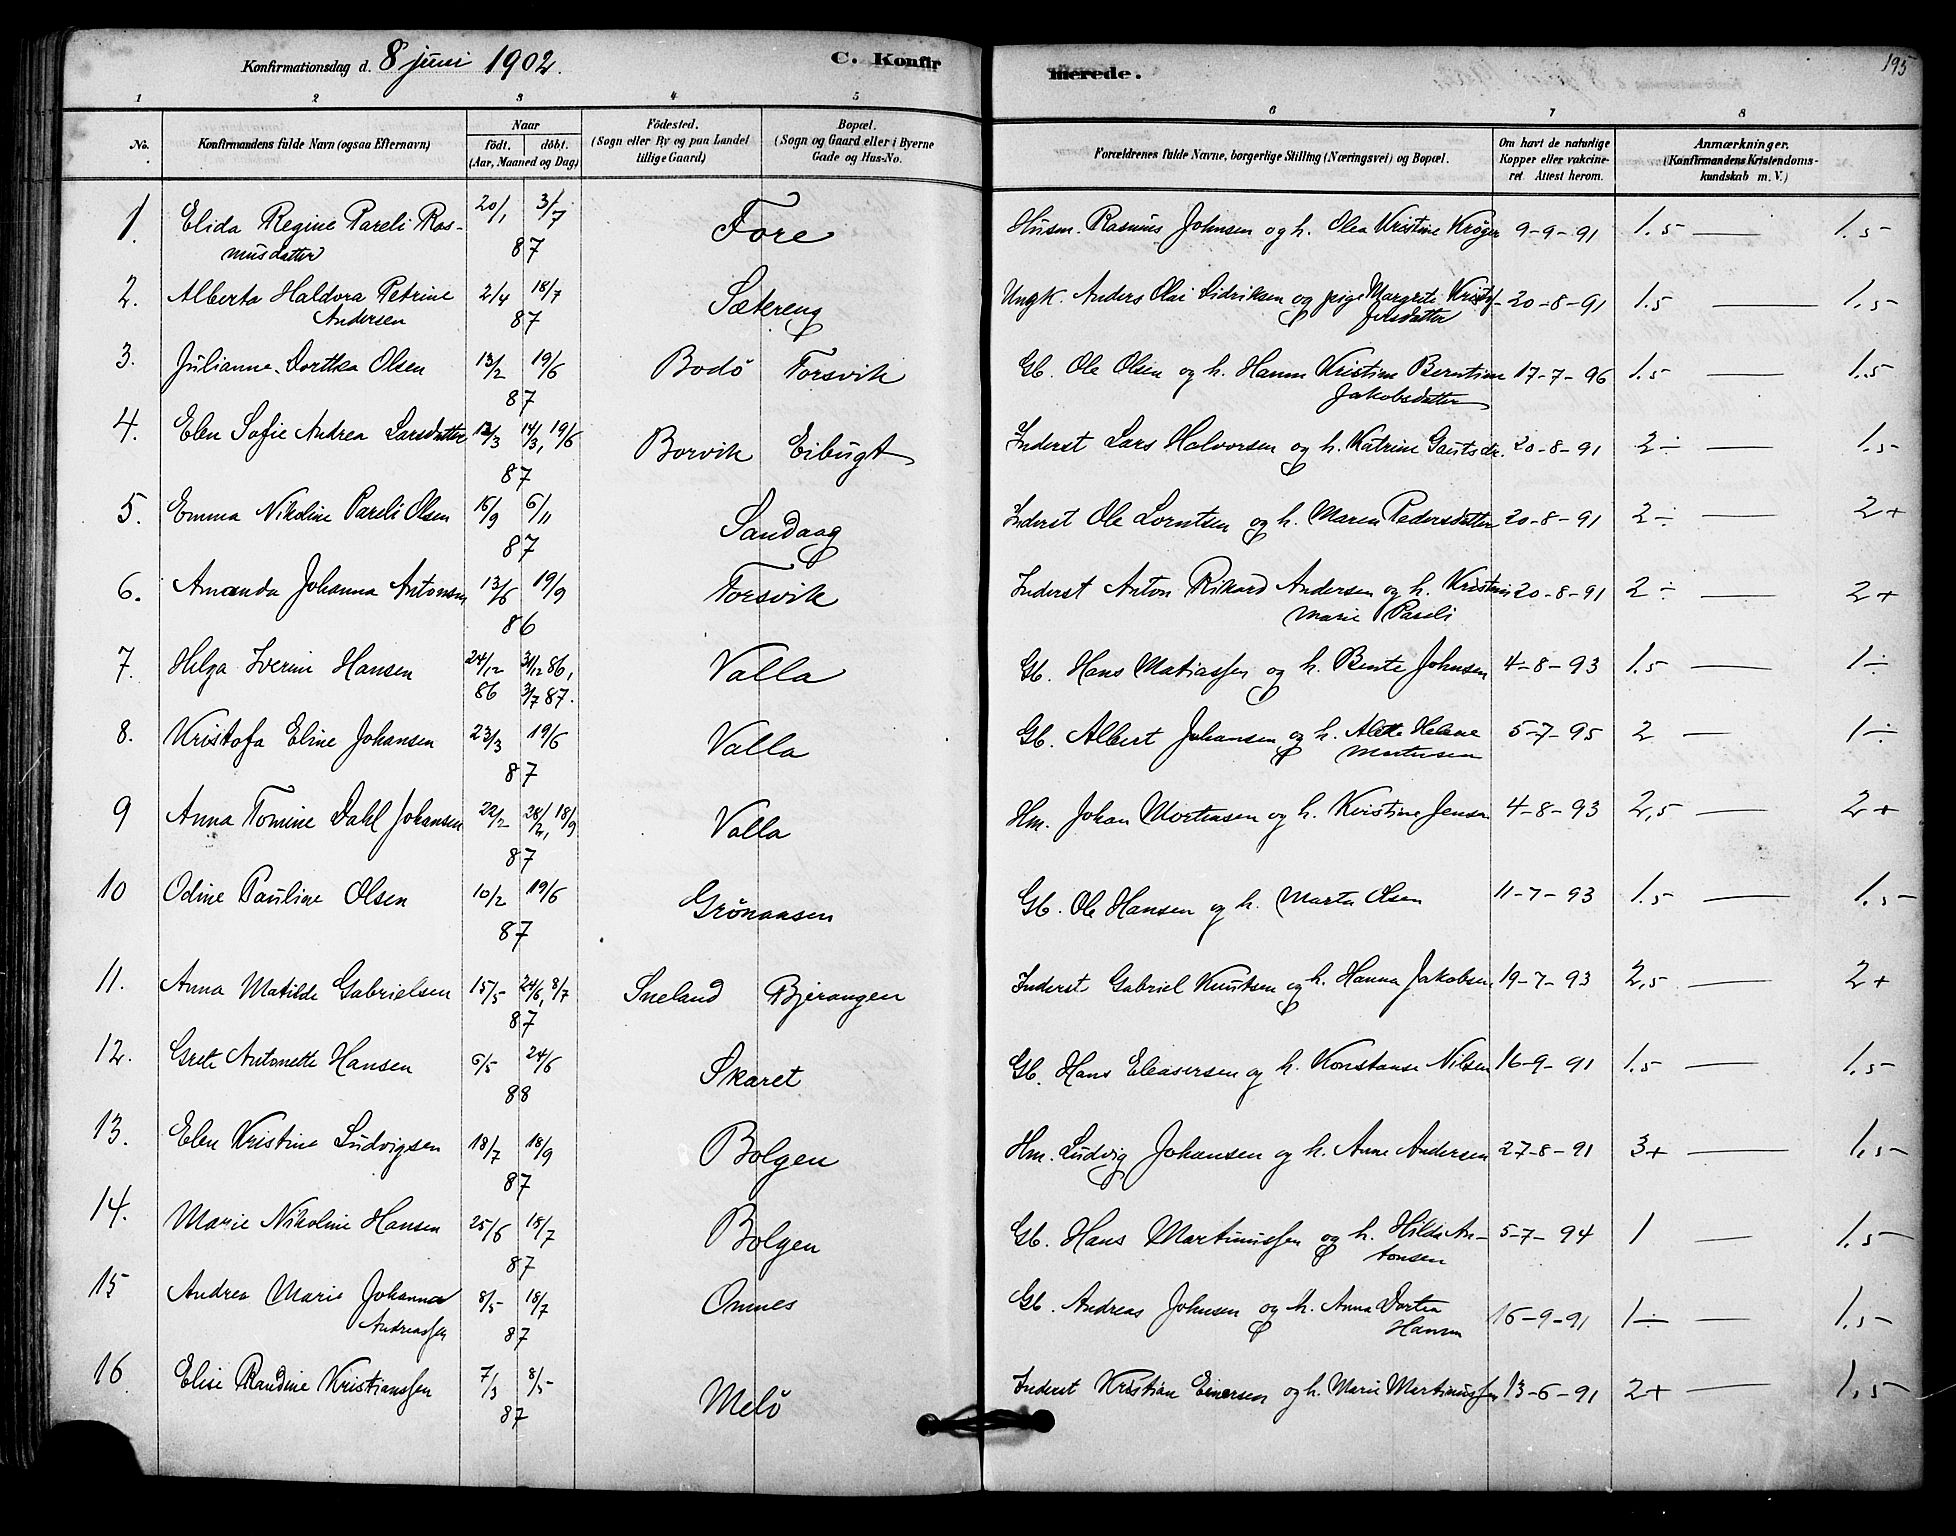 Konfirmationsdag d. 8 juni 1902. C. Konfirmerede. 195
1 2 3 4 5 6 7 8
No. Konfirmandens fulde Navn (ogsaa Efternavn) Naar født. døbt. (Aar, Maaned og Dag) Fødested. (Sogn eller By og paa Landet tillige Gaard) Bopæl. (Sogn og Gaard eller i Byerne Gade og Hus-No. Forældrenes fulde Navne, borgerlige Stilling (Næringsvei) og Bopæl. Om havt de naturlige Kopper eller vakcineret. Attest herom. Anmærkninger. (Konfirmandens Kristendomskundskab m. V.)
1. Elida Regine Pareli Ras- 20/1 3/7 Fore Husm. Rasmus Johnsen og h. Olea Kristine Krøger 9-9-91 1.5 — 1.5
musdatter 87
2. Alberta Haldora Petrine 2/4 18/7 Sætereng Ungk. Anders Olai Didriksen og pige Margrete Kristof- 20-8-91 1.5 — 1.5
Andersen 87 fersdatter
3. Julianna Dorthea Olsen 13/2 19/6 Bodø Forsvik Gb. Ole Olsen og h. Hanna Kristine Berntine 17-7-96 1.5 — 1.5
87 Jakobsdatter
4. Elen Sofie Andrea Larsdatter 12/3 14/3, 19/6 Borvik Eibugt Inderst Lars Halvorsen og h. Katrine Gautsdr. 20-8-91 2÷ — 1.5
87
5. Emma Nikoline Pareli Olsen 16/9 6/11 Sandaag Inderst Ole Lorntsen og h. Maren Pedersdatter 20-8-91 2÷ 2+
87
6. Amanda Johanna Antonsen 13/6 19/9 Forsvik Inderst Anton Rikard Andersen og h. Kristine 20-8-91 2÷ — 2+
86 Marie Pareli
7. Helga Iverine Hansen 24/12 31/12 86, Valla Gb. Hans Matiassen og h. Bente Johnsen 4-8-93 1.5 — 1÷
86 3/7 87.
8. Kristofa Eline Johansen 23/3 19/6 Valla Gb. Albert Johansen og h. Alette Helene 5-7-95 2 — 1÷
87 Mortensen
9 Anna Tomine Dahl Johansen 22/2 28/2, 18/9 Valla Hm. Johan Mortensen og h. Kristine Jensen 4-8-93 2,5 — 2+
87
10 Odine Pauline Olsen 10/2 19/6 Grønaasen Gb. Ole Hansen og h. Marta Olsen 11-7-93 1.5 — 1.5
87
11. Anna Matilde Gabrielsen 15/5 24/6, 8/7 Sneland Bjerangen Inderst Gabriel Knutsen og h. Hanna Jakobsen 19-7-93 2,5 — 2+
87
12. Grete Antonette Hansen 6/5 24/6 Skaret Gb. Hans Eleasersen og h. Konstanse Nilsen 16-9-91 1.5 — 1.5
88
13. Elen Kristine Ludvigsen 18/7 18/9 Bolgen Hm. Ludvig Johansen og h. Anne Andersen 27-8-91 3+ — 1.5
87
14. Marie Nikoline Hansen 25/6 18/7 Bolgen Gb. Hans Martinussen og h. Hilda An- 5-7-94 1 — 1.5
87 tonsen
15 Andrea Marie Johanna 8/5 18/7 Omnes Gb. Andreas Johnsen og h. Anna Dortea 16-9-91 1÷ — 1.5
Andreassen 87 Hansen
16 Elise Randine Kristianssen 7/3 8/5 Melø Inderst Kristian Einersen og h. Marie Martinussen 13-6-91 2+ — 1.5
87